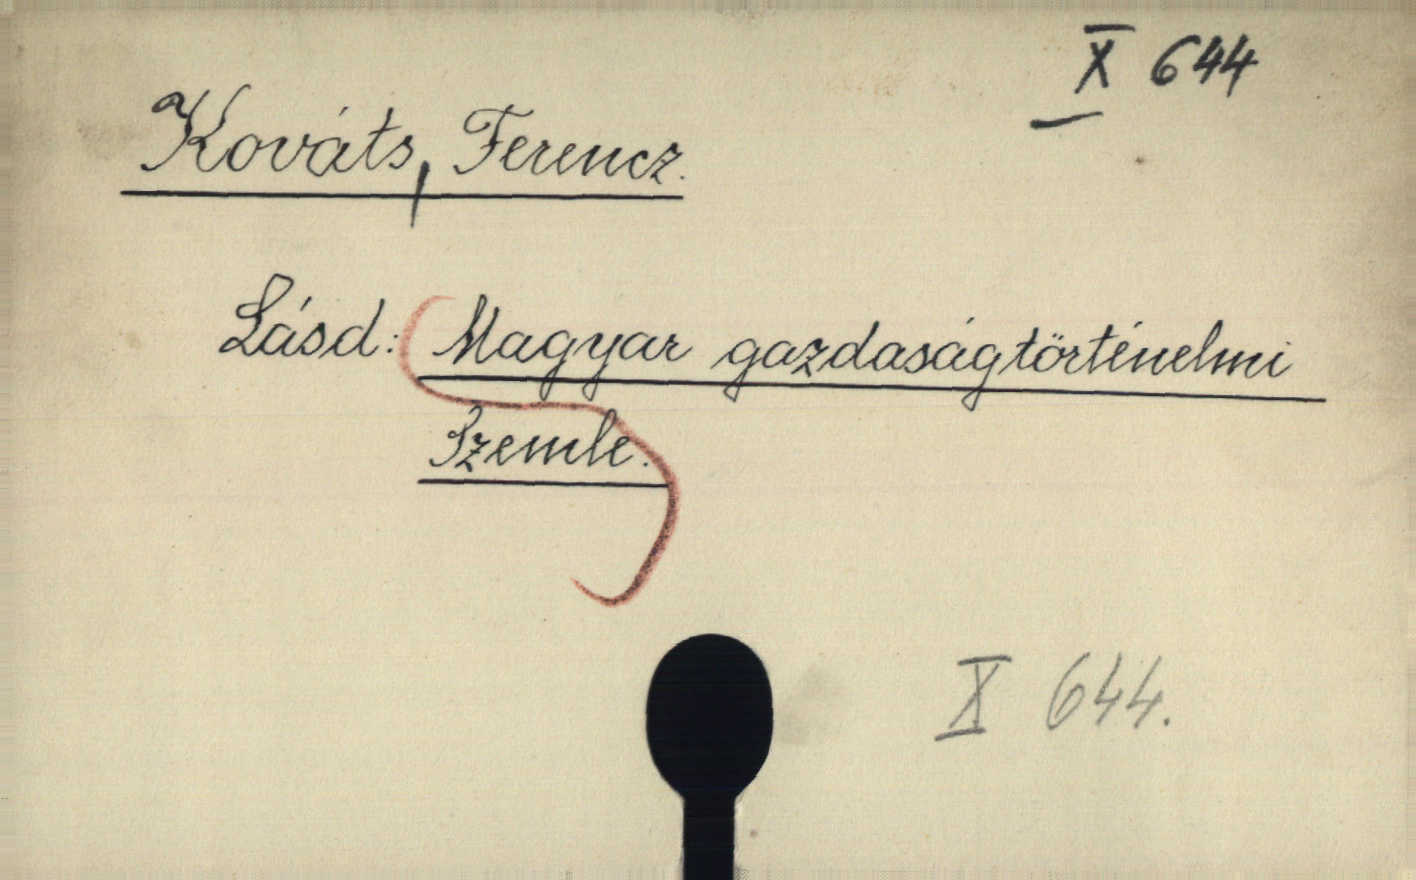 X 644
Kováts, Ferencz.
Lásd: Magyar gazdaságtörténelmi
Szemle.
X 644.